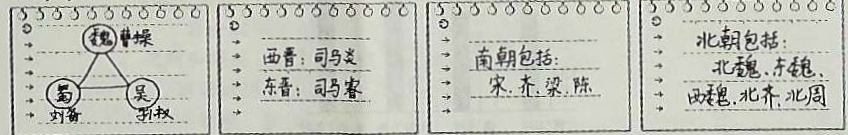 魏 曹操
蜀 吴
刘备 孙权
西晋:司马炎
东晋:司马睿
南朝包括:
宋、齐、梁、陈
北朝包括:
北魏、东魏、
西魏、北齐、北周